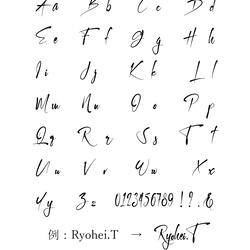 A a B b C c D d
E e F f G g H h
I i J j K k L l
M m N n O o P p
Q q R r S s T t
U u V v W w X x
Y y Z z 0123456789 ! ? . &
例：Ryohei.T → Ryohei.T